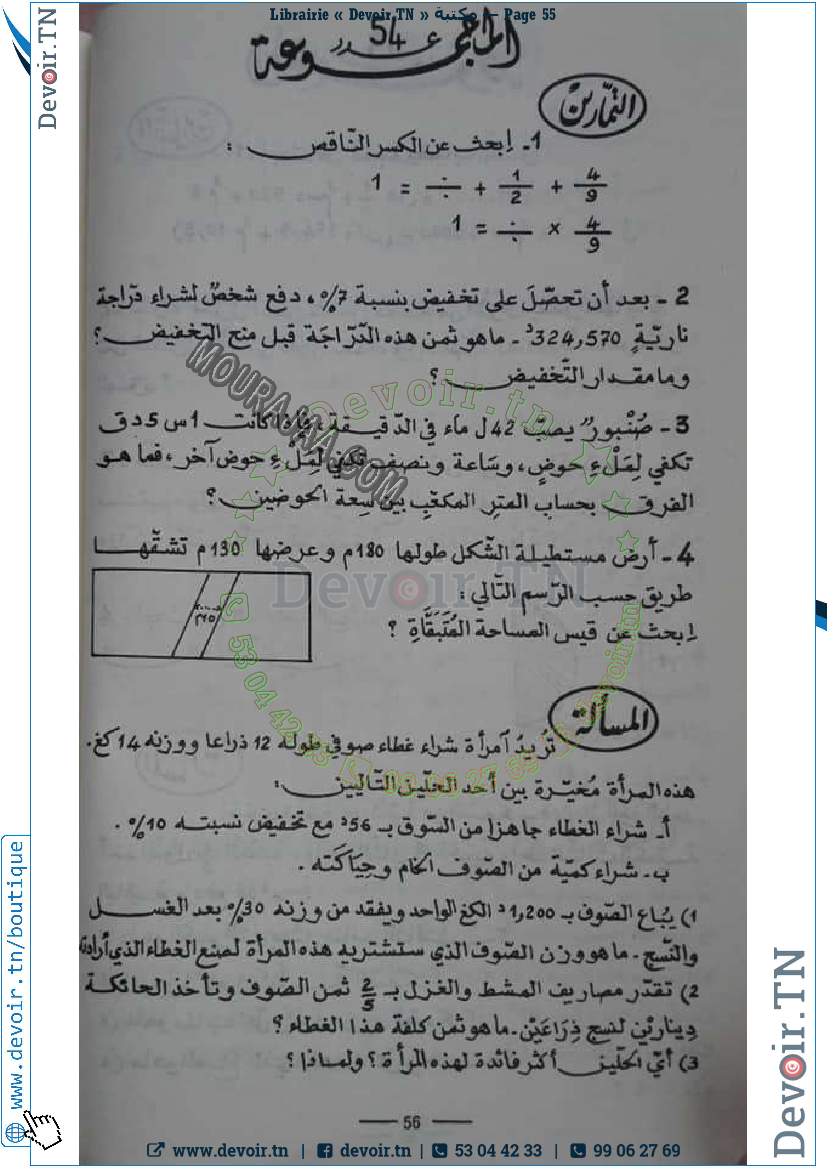 Librairie « Devoir.TN » مكتبة — Page 55
المجموعة عدد 54
التمارين
1 - إبحث عن الكسر النّاقص :
4/9 + 1/2 + ÷ = 1
4/9 × ÷ = 1
2 - بعد أن تحصّلَ على تخفيض بنسبة 7%، دفع شخصٌ لشراء درّاجة
ناريّةٍ 324,570د - ماهو ثمن هذه الدّرّاجَة قبل منح التّخفيض؟
وما مقدار التّخفيض ؟
3 - صُنْبورٌ يصبّ 42ل ماء في الدّقيقة، فإذا كانت 1س 5دق
تكفي لِمَلْءِ حوضٍ، وسَاعة ونصف تكفي لِمَلءِ حوض آخر، فما هو
الفرق بحساب المترِ المكعّبِ بين سِعة الحوضين ؟
4 - أرض مستطيلة الشّكل طولها 180م وعرضها 130م تشقّها
طريق حسب الرّسم التّالي :
10م
إبحث عن قيس المساحة المُتَبَقَّاةِ ؟
المسألة
تُريدُ آمرأة شراء غطاء صوفي طوله 12 ذراعا ووزنه 14كغ.
هذه المرأة مُخيّرة بين أحد الحلّين التّاليين :
أ - شراء الغطاء جاهزا من السّوق بـ 56د مع تخفيض نسبته 10% .
ب - شراء كميّة من الصّوف الخام وحِيَاكَته .
1) يُباع الصّوف بـ 1,200د الكغ الواحد ويفقد من وزنه 30% بعد الغسل
والنّسج - ماهو وزن الصّوف الذي ستشتريه هذه المرأة لصنع الغطاء الذي أرادته
2) تقدّر مصاريف المشط والغزل بـ 2/5 ثمن الصّوف وتأخذ الحائكة
دِيناريْن لنسج ذِرَاعَيْن. ماهو ثمن كلفة هذا الغطاء ؟
3) أيّ الحلّين أكثر فائدة لهذه المرأة ؟ ولماذا ؟
56
www.devoir.tn | devoir.tn | 53 04 42 33 | 99 06 27 69
Devoir.TN
www.devoir.tn/boutique
Devoir.TN
MOURAJAA.COM
Devoir.tn
Devoir.TN
53 04 42 33
99 06 27 69
devoir.tn